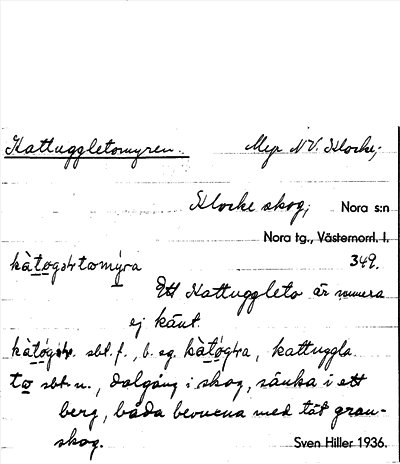 Kattuggletomyren. Myr NV. Klocke,-
Klocke skog, Nora s:n
Nora tg., Västernorrl. l.
kàtogətətomýra 349.
Ett Kattuggleto är numera
ej känt.
sbt. f., b. eg. kàtógɫra, kattuggla
to sbt. n., dalgång i skog, sänka i ett
berg, båda bevuxna med tät gran-
skog. Sven Hiller 1936.